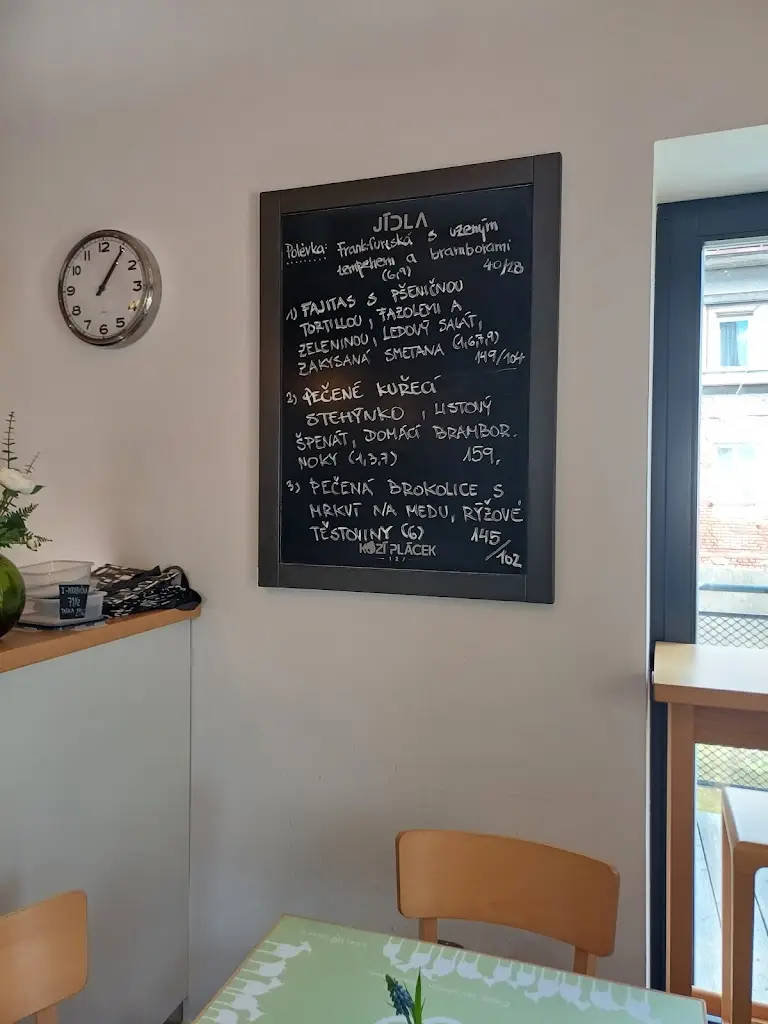 12
1
2
3
4
5
6
7
8
9
10
11
JÍDLA
Polévka: Frankfurtská s uzeným
tempehem a bramborami
(6,9) 40/28
1) FAJITAS S PŠENIČNOU
TORTILLOU, FAZOLEMI A
ZELENINOU, LEDOVÝ SALÁT,
ZAKYSANÁ SMETANA (1,6,7,9)
149/104
2) PEČENÉ KUŘECÍ
STEHÝNKO, LISTOVÝ
ŠPENÁT, DOMÁCÍ BRAMBOR.
NOKY (1,3,7) 159,
3) PEČENÁ BROKOLICE S
MRKVÍ NA MEDU, RÝŽOVÉ
TĚSTOVINY (6) 145
/102
KOZÍ PLÁCEK